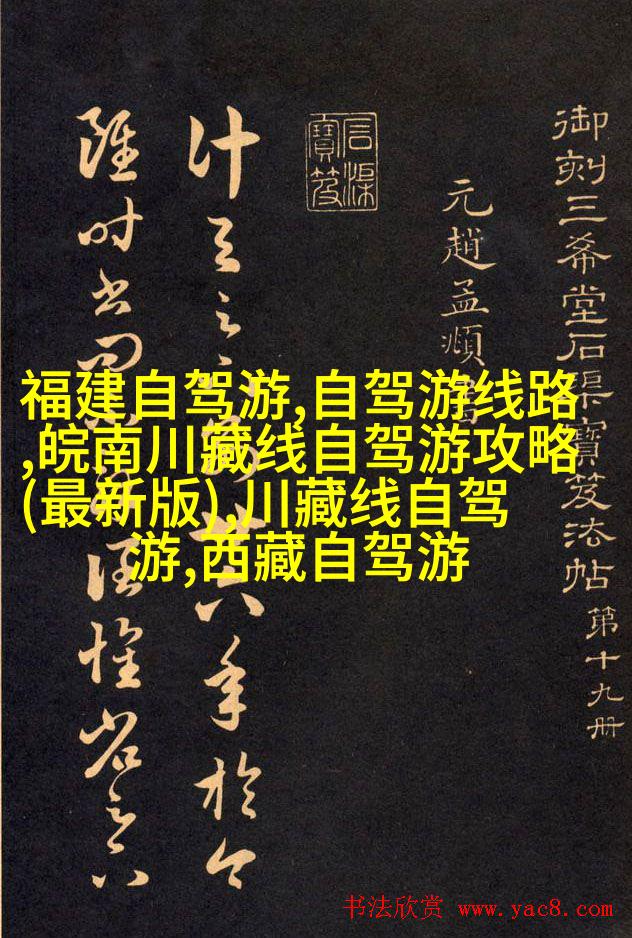 福建自驾游,自驾游线路
,皖南川藏线自驾游攻略
(最新版),川藏线自驾
游,西藏自驾游
御刻三希堂石渠寶笈法帖 第十九册
元趙孟頫書
石渠寶笈
八年於今
雖时书问
书法欣赏 www.yac8.com